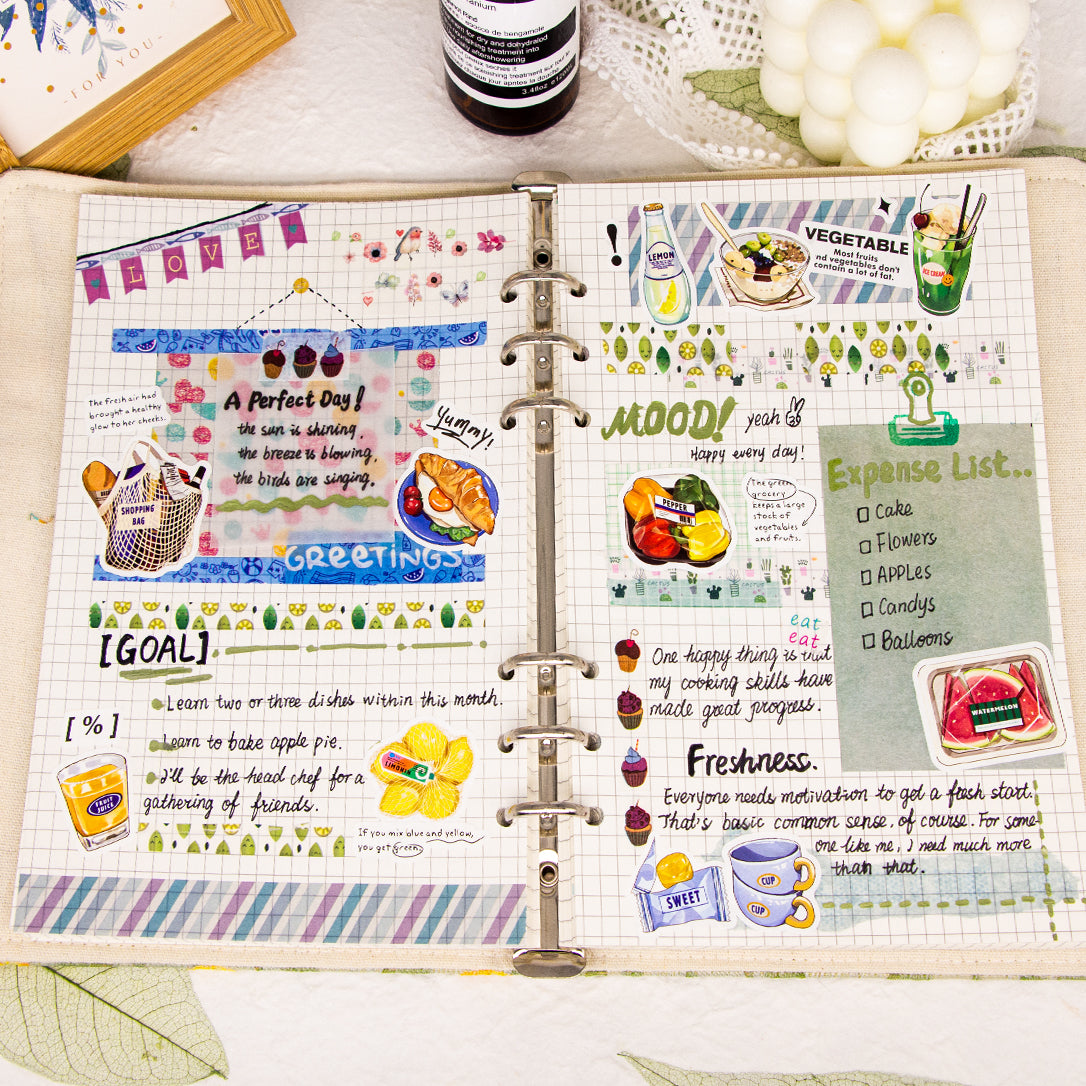 -FOR YOU-
for dry and dohydralod
nourishing treatment into
aftershowering
3.4floz
LOVE
The fresh air had
brought a healthy
glow to her cheeks.
SHOPPING
BAG
A Perfect Day!
the sun is shining,
the breeze is blowing,
the birds are singing.
Yummy!
GREETINGS
[GOAL]
Learn two or three dishes within this month.
[%]
Learn to bake apple pie.
I'll be the head chef for a
gathering of friends.
FRUIT
JUICE
LIMONIN
If you mix blue and yellow,
you get green.
!
LEMON
VEGETABLE
Most fruits
nd vegetables don't
contain a lot of fat.
ICE CREAM
CACTUS
CACTUS
MOOD!
yeah
Happy every day!
PEPPER
The green
grocery
keeps a large
stock of
vegetables
and fruits.
CACTUS
CACTUS
Expense List..
Cake
Flowers
APPLes
Candys
Balloons
WATERMELON
eat
eat
One happy thing is that
my cooking skills have
made great progress.
Freshness.
Everyone needs motivation to get a fresh start.
That's basic common sense, of course. For some-
one like me, I need much more
than that.
SWEET
CUP
CUP